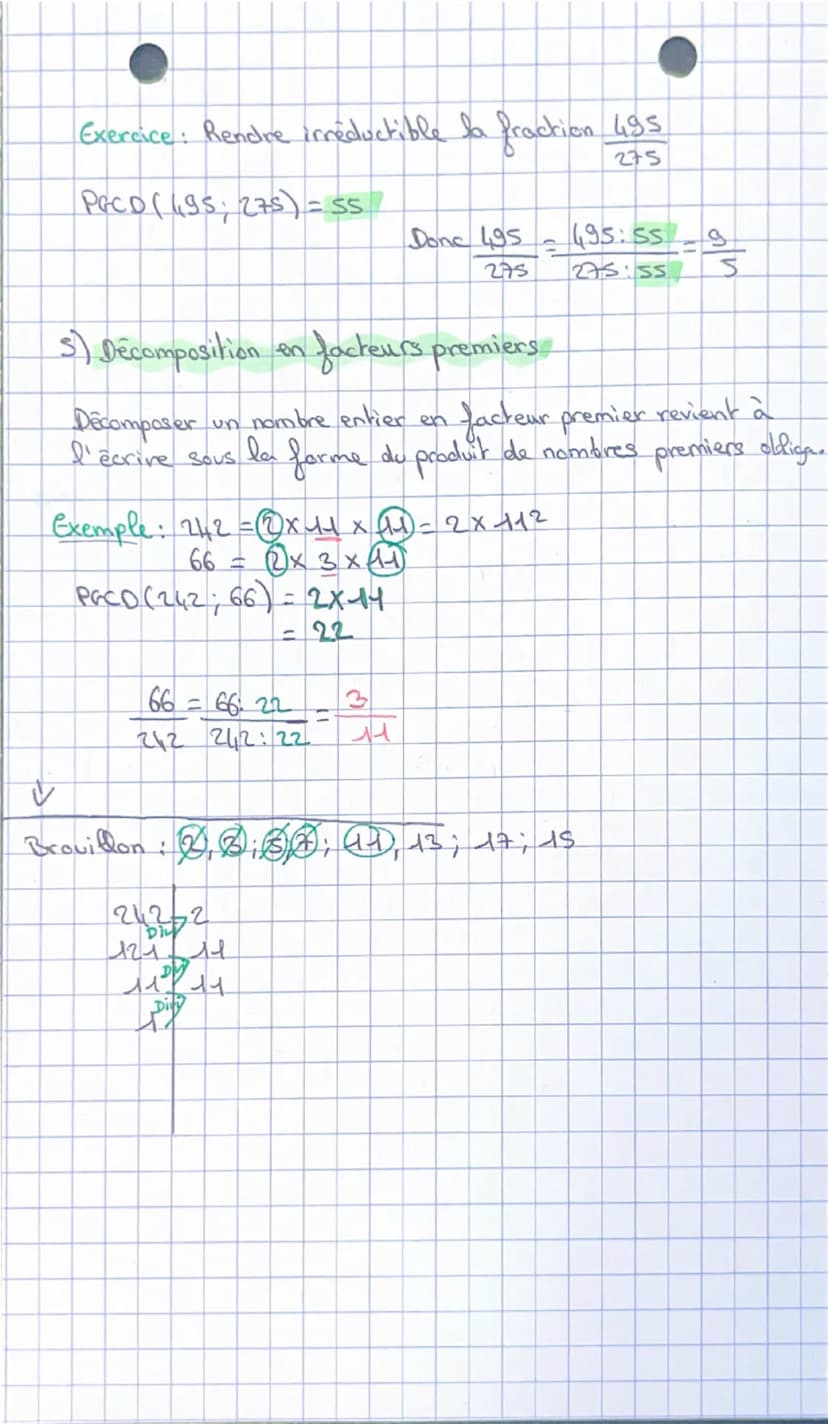 Exercice : Rendre irréductible la fraction 495/275
PGCD(495 ; 275) = 55
Donc 495/275 = 495:55/275:55 = 9/5
5) Décomposition en facteurs premiers
Décomposer un nombre entier en facteur premier revient à
l'écrire sous la forme du produit de nombres premiers obliga.
Exemple : 242 = 2 x 11 x 11 = 2 x 11²
66 = 2 x 3 x 11
PGCD(242 ; 66) = 2x11
= 22
66/242 = 66:22/242:22 = 3/11
Brouillon : 2, 3 ; 5, 7 ; 11, 13 ; 17 ; 19
242 2
Div
121 11
Div
11 11
Div
1